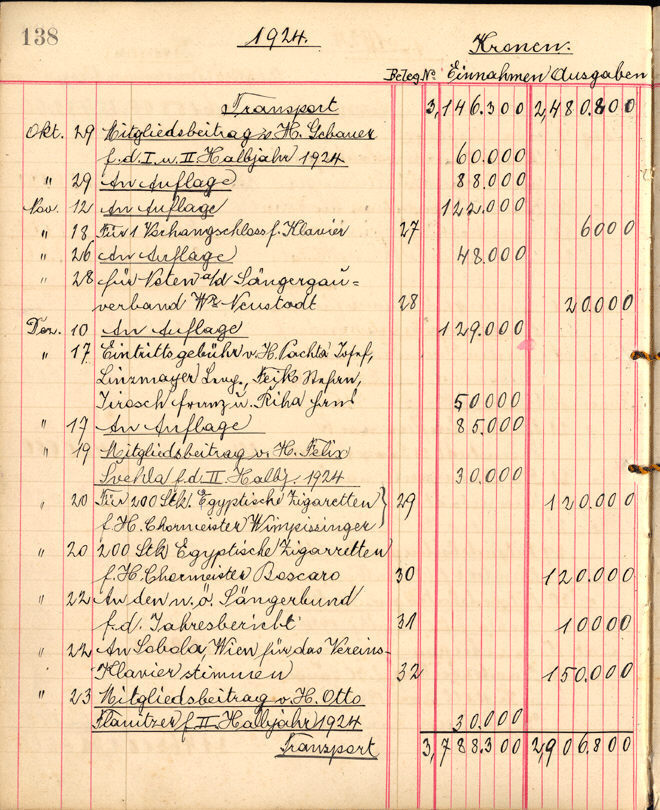 138
1924.
Kronen.
Beleg No Einnahmen Ausgaben
Transport 3,146.300 2,480.800
Okt. 29 Mitgliedsbeitrag v. H. Gschauer
f. d. I. u. II Halbjahr 1924 60.000
" 29 An Auflage 88.000
Nov. 12 An Auflage 122.000
" 18 Für 1 Vorhangschloss f. Klavier 27 6000
" 26 An Auflage 48.000
" 28 für Noten a/d Sängergau=
verband Wr Neustadt 28 20.000
Dez. 10 An Auflage 129.000
" 17 Eintrittsgebühr v. H. Pachta Josef,
Linzmayer , Fejk Stefan,
Tirosch Franz u. Riha 50.000
" 17 An Auflage 85.000
" 19 Mitgliedsbeitrag v. H. Felix
Svehla f. d. II. Halbj. 1924 30.000
" 20 Für 200 Stk. Egyptische Zigaretten
f. H. Chormeister Wimpissinger } 29 120.000
" 20 200 Stk Egyptische Zigarretten
f. H. Chormeister Boscaro 30 120.000
" 22 An den n. ö. Sängerbund
f. d. Jahresbericht 31 10000
" 22 An Sobola, Wien für das Vereins-
Klavier stimmen 32 150.000
" 23 Mitgliedsbeitrag v. H. Otto
Flanitzer f. II. Halbjahr 1924 30.000
Transport 3,788.300 2,906.800